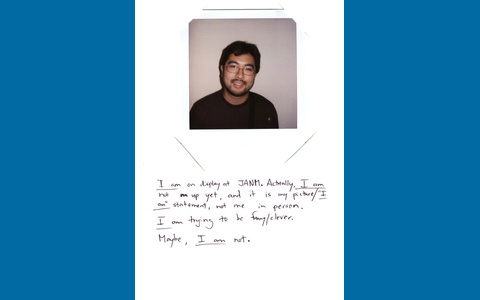 I am on display at JANM. Actually, I am
not up yet, and it is my picture/"I
am" statement, not me in person.
I am trying to be funny/clever.
Maybe, I am not.